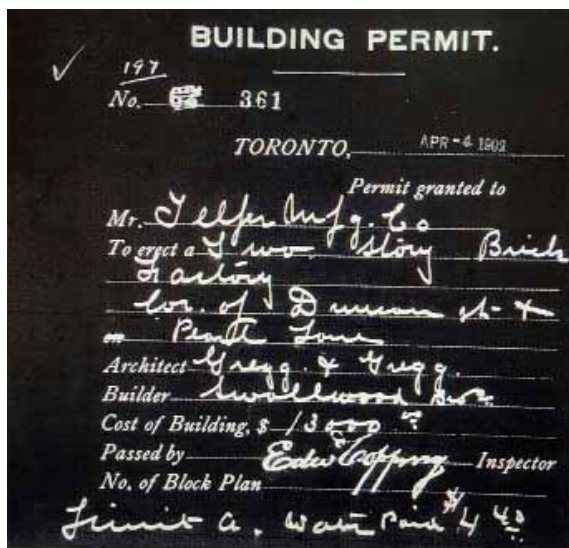 BUILDING PERMIT.
197
No. 361
TORONTO, APR -4 1902
Permit granted to
Mr. Telfer Mfg. Co
To erect a Two Story Brick
Factory
Cor. of Duncan st &
on Pearl
Architect Gregg & Gregg.
Builder Bros.
Cost of Building, $ 13000
Passed by Edw Copping Inspector
No. of Block Plan
Limit A. Water Paid $4